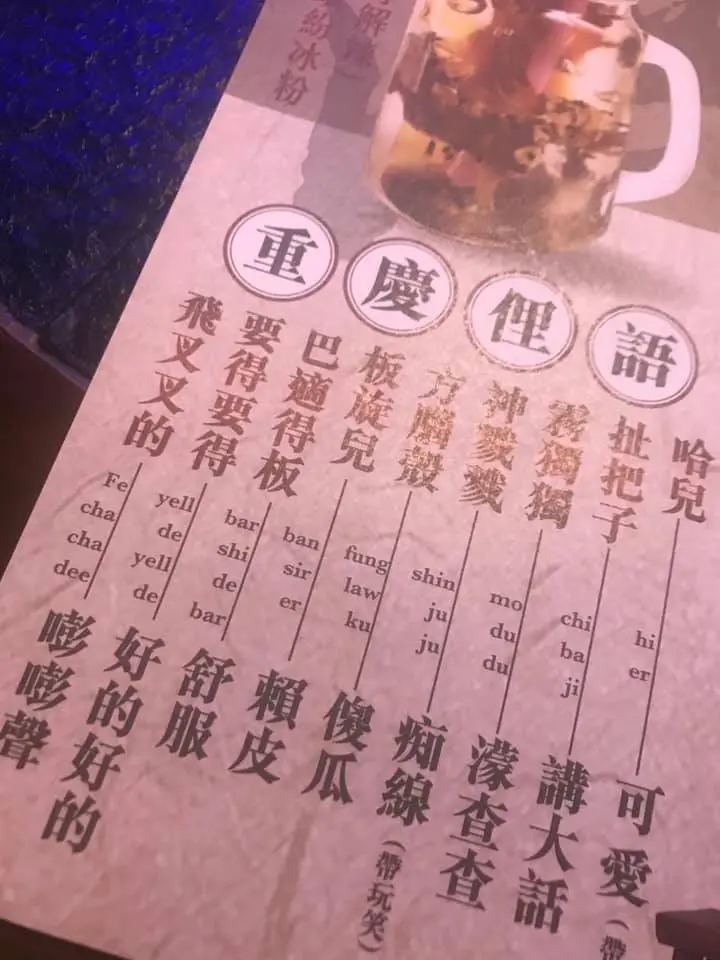 解
紛冰粉
重慶俚語
哈兒
hi
er
可愛（帶
扯把子
chi
ba
ji
講大話
霧獨獨
mo
du
du
濛查查
神戳戳
shin
ju
ju
痴線（帶玩笑）
方腦殼
fung
law
ku
傻瓜
板旋兒
ban
sir
er
賴皮
巴適得板
bar
shi
de
bar
舒服
要得要得
yell
de
yell
de
好的好的
飛叉叉的
Fe
cha
cha
dee
嘭嘭聲